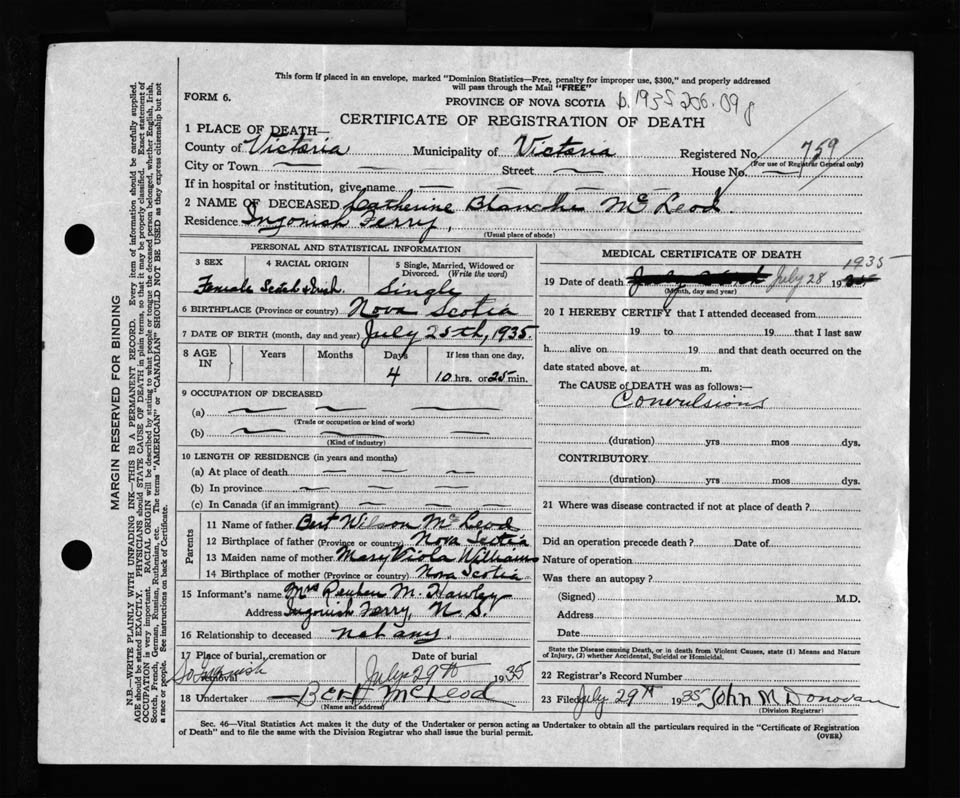 This form if placed in an envelope, marked "Dominion Statistics—Free, penalty for improper use, $300," and properly addressed
will pass through the Mail "FREE"
FORM 6.
PROVINCE OF NOVA SCOTIA b. 1935 206.098
CERTIFICATE OF REGISTRATION OF DEATH
1 PLACE OF DEATH—
County of Victoria Municipality of Victoria Registered No. 759
(For use of Registrar General only)
City or Town — — Street — — House No. —
If in hospital or institution, give name — — — —
2 NAME OF DECEASED Catherine Blanche McLeod.
Residence Ingonish Ferry,
(Usual place of abode)
PERSONAL AND STATISTICAL INFORMATION
3 SEX 4 RACIAL ORIGIN 5 Single, Married, Widowed or
Divorced. (Write the word)
Female Scotch & Irish. Single
6 BIRTHPLACE (Province or country) Nova Scotia
7 DATE OF BIRTH (month, day and year) July 25th, 1935.
8 AGE IN Years Months Days If less than one day,
4 10 hrs. or 25 min.
9 OCCUPATION OF DECEASED
(a) — — —
(Trade or occupation or kind of work)
(b) — —
(Kind of industry)
10 LENGTH OF RESIDENCE (in years and months)
(a) At place of death — — —
(b) In province — — —
(c) In Canada (if an immigrant) — — —
Parents
11 Name of father Bert Wilson McLeod
12 Birthplace of father (Province or country) Nova Scotia
13 Maiden name of mother Mary Viola Williams
14 Birthplace of mother (Province or country) Nova Scotia
15 Informant's name Mrs Reuben M. Hawley
Address Ingonish Ferry, N. S.
16 Relationship to deceased not any
17 Place of burial, cremation or Date of burial
So Ingonish July 29th 1935
18 Undertaker — Bert McLeod
(Name and address)
MEDICAL CERTIFICATE OF DEATH
1935
19 Date of death July 28 19
(Month, day and year)
20 I HEREBY CERTIFY that I attended deceased from
19 to 19 that I last saw
h alive on 19 and that death occurred on the
date stated above, at m.
The CAUSE of DEATH was as follows:—
Convulsions
(duration) yrs mos dys.
CONTRIBUTORY
(duration) yrs mos dys.
21 Where was disease contracted if not at place of death?
Did an operation precede death? Date of
Nature of operation
Was there an autopsy?
(Signed) M.D.
Address
Date
State the Disease causing Death, or in death from Violent Causes, state (1) Means and Nature
of Injury, (2) whether Accidental, Suicidal or Homicidal.
22 Registrar's Record Number
23 Filed July 29th 1935 John M Donovan
(Division Registrar)
Sec. 46—Vital Statistics Act makes it the duty of the Undertaker or person acting as Undertaker to obtain all the particulars required in the "Certificate of Registration
of Death" and to file the same with the Division Registrar who shall issue the burial permit.
(OVER)
MARGIN RESERVED FOR BINDING
N.B.—WRITE PLAINLY WITH UNFADING INK—THIS IS A PERMANENT RECORD. Every item of information should be carefully supplied.
AGE should be stated EXACTLY. PHYSICIANS should STATE CAUSE OF DEATH in plain terms, so that it may be properly classified. Exact statement of
OCCUPATION is very important. RACIAL ORIGIN will be described by stating to what people or tongue the deceased person belonged, whether English, Irish,
Scotch, French, German, Russian, Ruthenian, etc. The terms "AMERICAN" or "CANADIAN" SHOULD NOT BE USED as they express citizenship but not
a race or people. See instructions on back of Certificate.